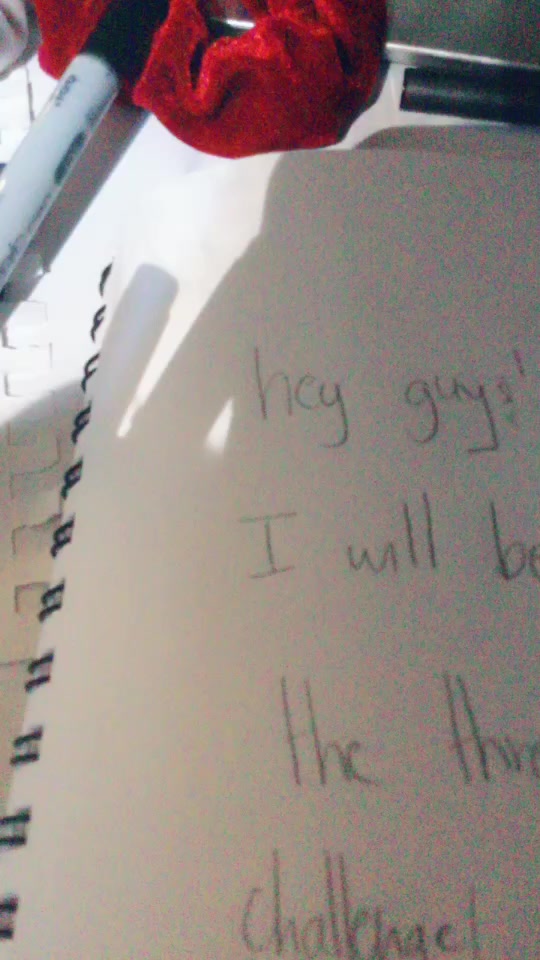 hey guys!
I will be
the thre
challenge!